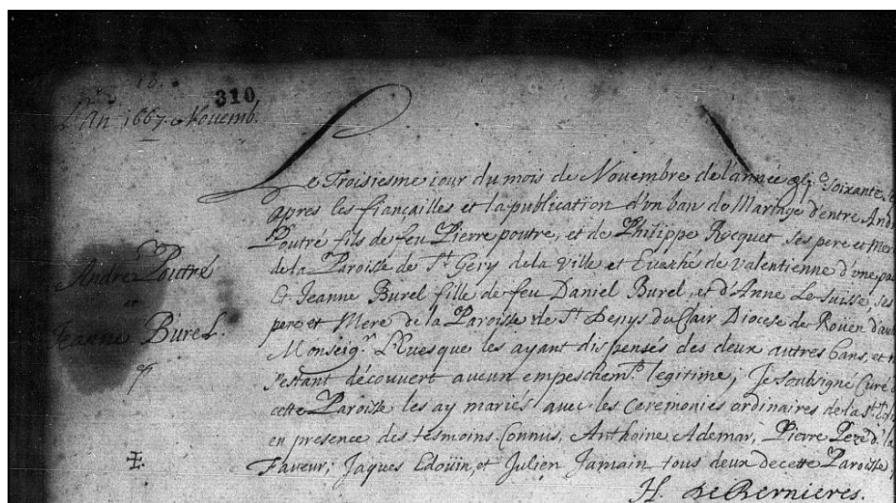 310
L'An 1667. Nouemb.
Le Troisiesme iour du mois de Novembre de l'année soixante
apres les fiançailles et la publication d'vn ban de Mariage d'entre And
Poutré fils de feu Pierre poutre, et de Philippe Rocquet ses pere et Mer
de la Paroisse de St Gery de la Ville et Euesché de Valentienne d'vne pa
Et Jeanne Burel fille de feu Daniel Burel, et d'Anne Le Suisse, ses
pere et Mere de la Paroisse de St Denys du Clair Diocese de Rouen d'au
Monseigr L'Euesque les ayant dispensés des deux autres bans, et n
s'estant découvert aucun empeschemt legitime; Je soubsigné Curé
cette Paroisse les ay mariés avec les Ceremonies ordinaires de la Ste
en presence des tesmoins Connus, Anthoine Ademar, Pierre
Faveur; Jaques Edoüin, et Julien Jamain tous deux de cette Paroisse
H. de Bernieres.
Andre Poutré
et
Jeanne Burel